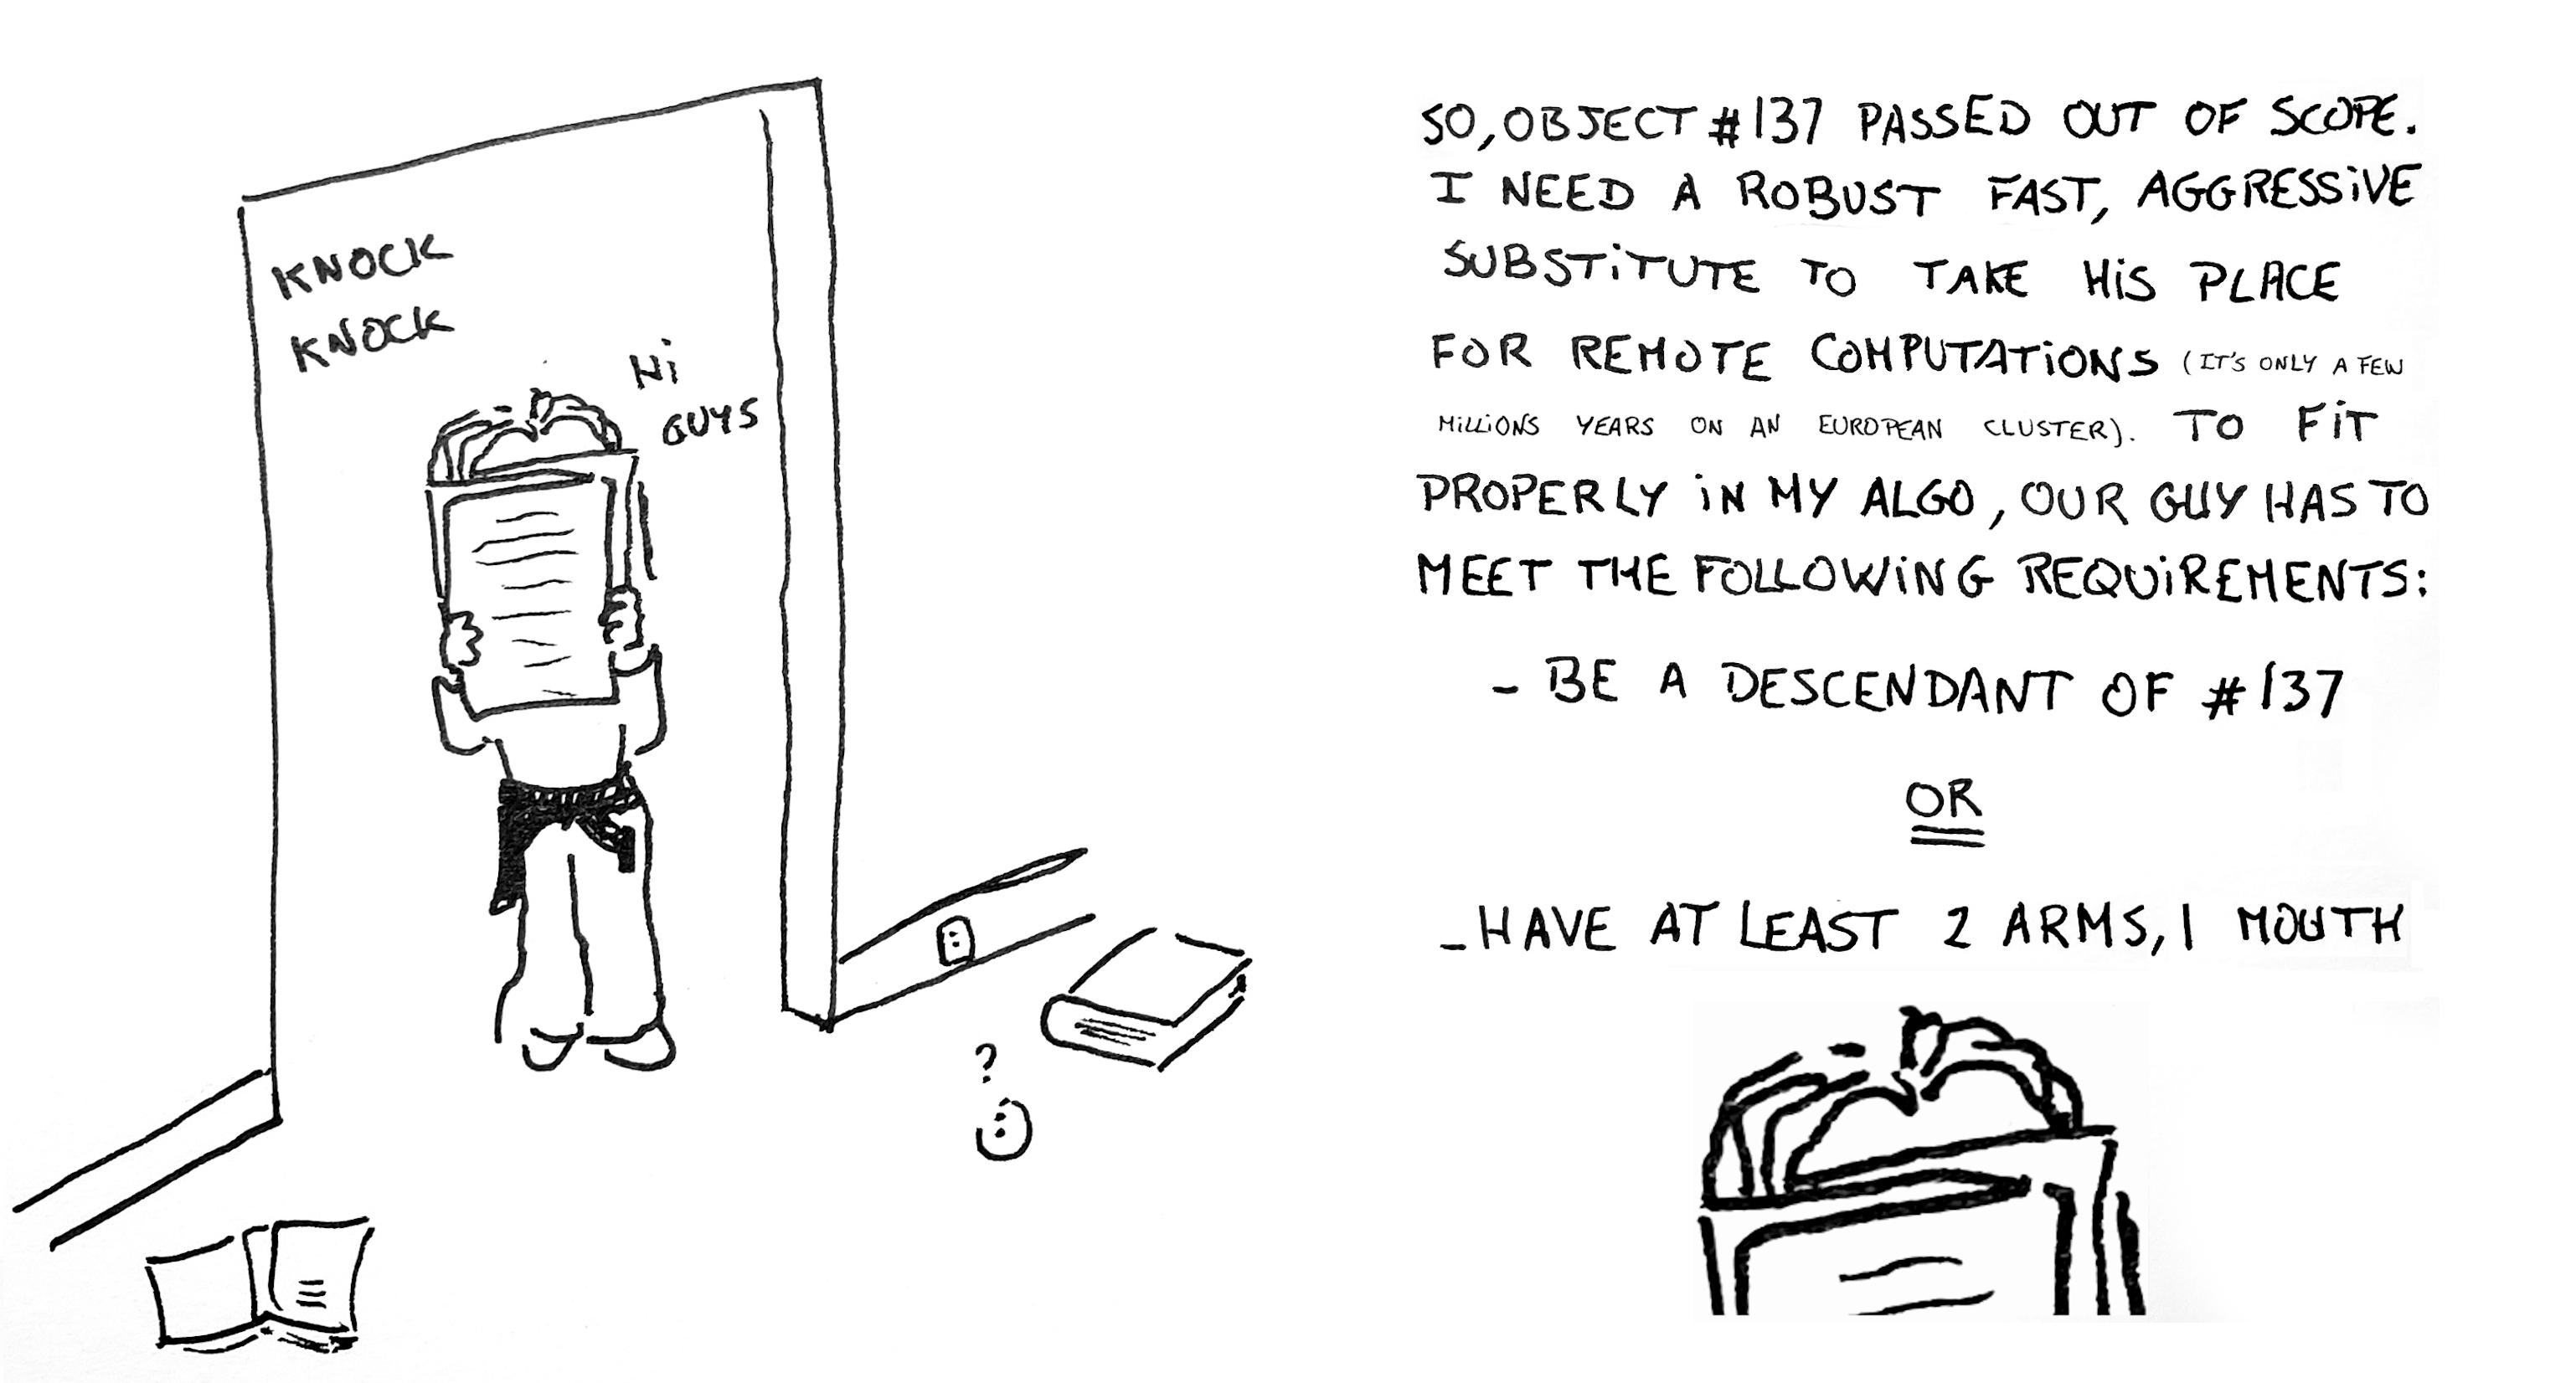 KNOCK
KNOCK
Hi
GUYS
?
SO, OBJECT #137 PASSED OUT OF SCOPE.
I NEED A ROBUST FAST, AGGRESSiVE
SUBSTiTUTE TO TAKE HiS PLACE
FOR REMOTE COMPUTATiONS (IT'S ONLY A FEW
MiLLiONS YEARS ON AN EUROPEAN CLUSTER). TO FiT
PROPERLY iN MY ALGO, OUR GUY HAS TO
MEET THE FOLLOWiNG REQUiREMENTS:
- BE A DESCENDANT OF #137
OR
- HAVE AT LEAST 2 ARMS, 1 MOUTH